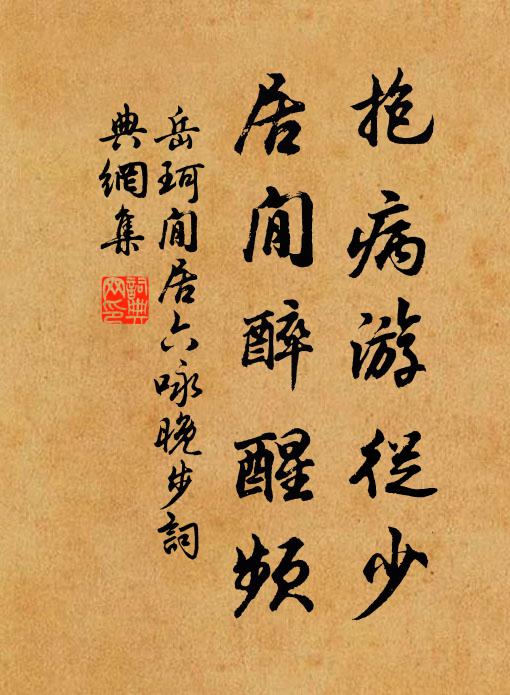 抱病游從少
居閒醉醒頻
岳珂閒居六咏晚步詞
典網集
詞典網印